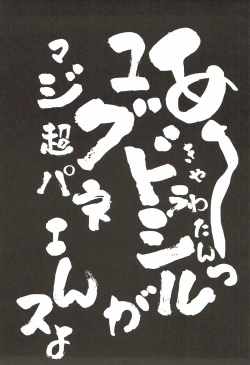 あ〜っ
きゃわたん
ユグドラシルが
マジ超パネエんスよ